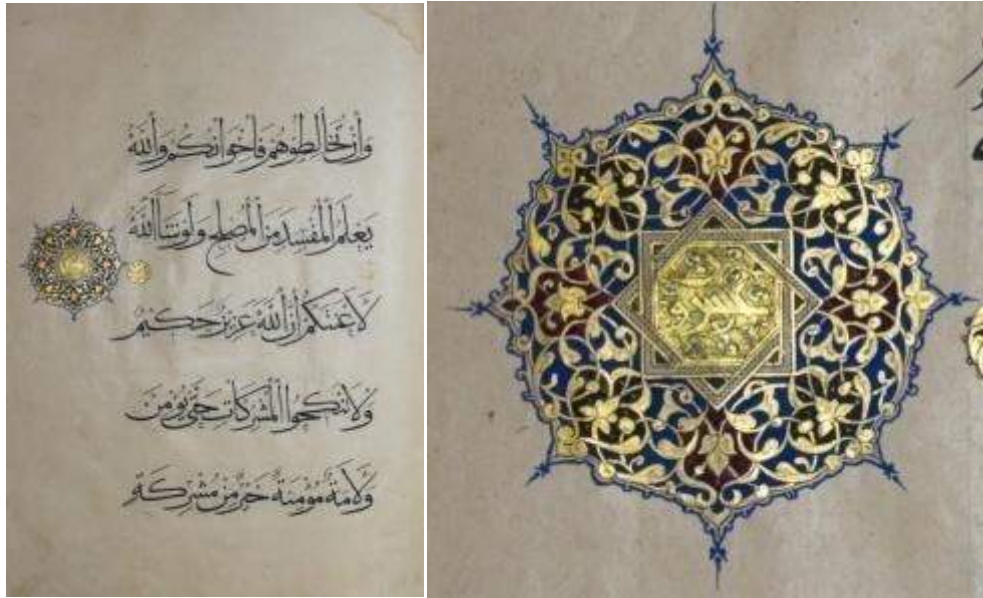 وَأِن تُخَالِطُوهُم فَأِخوَانُكُم وَاَللَّهُ
يَعلَمُ اَلمُفسِدَ مِنَ اَلمُصلِحِ وَلَو شَآَ اَللَّهُ
لَأَعنَتَكُم أِنَّ اَللَّهَ عَزِيزٌ حَكِيمٌ
وَلَا تَنكِحُوا اَلمُشرِكَاتِ حَتَّى يُؤمِنَّ
وَلَأَمَةٌ مُؤمِنَةٌ خَيرٌ مِن مُشرِكَةٍ